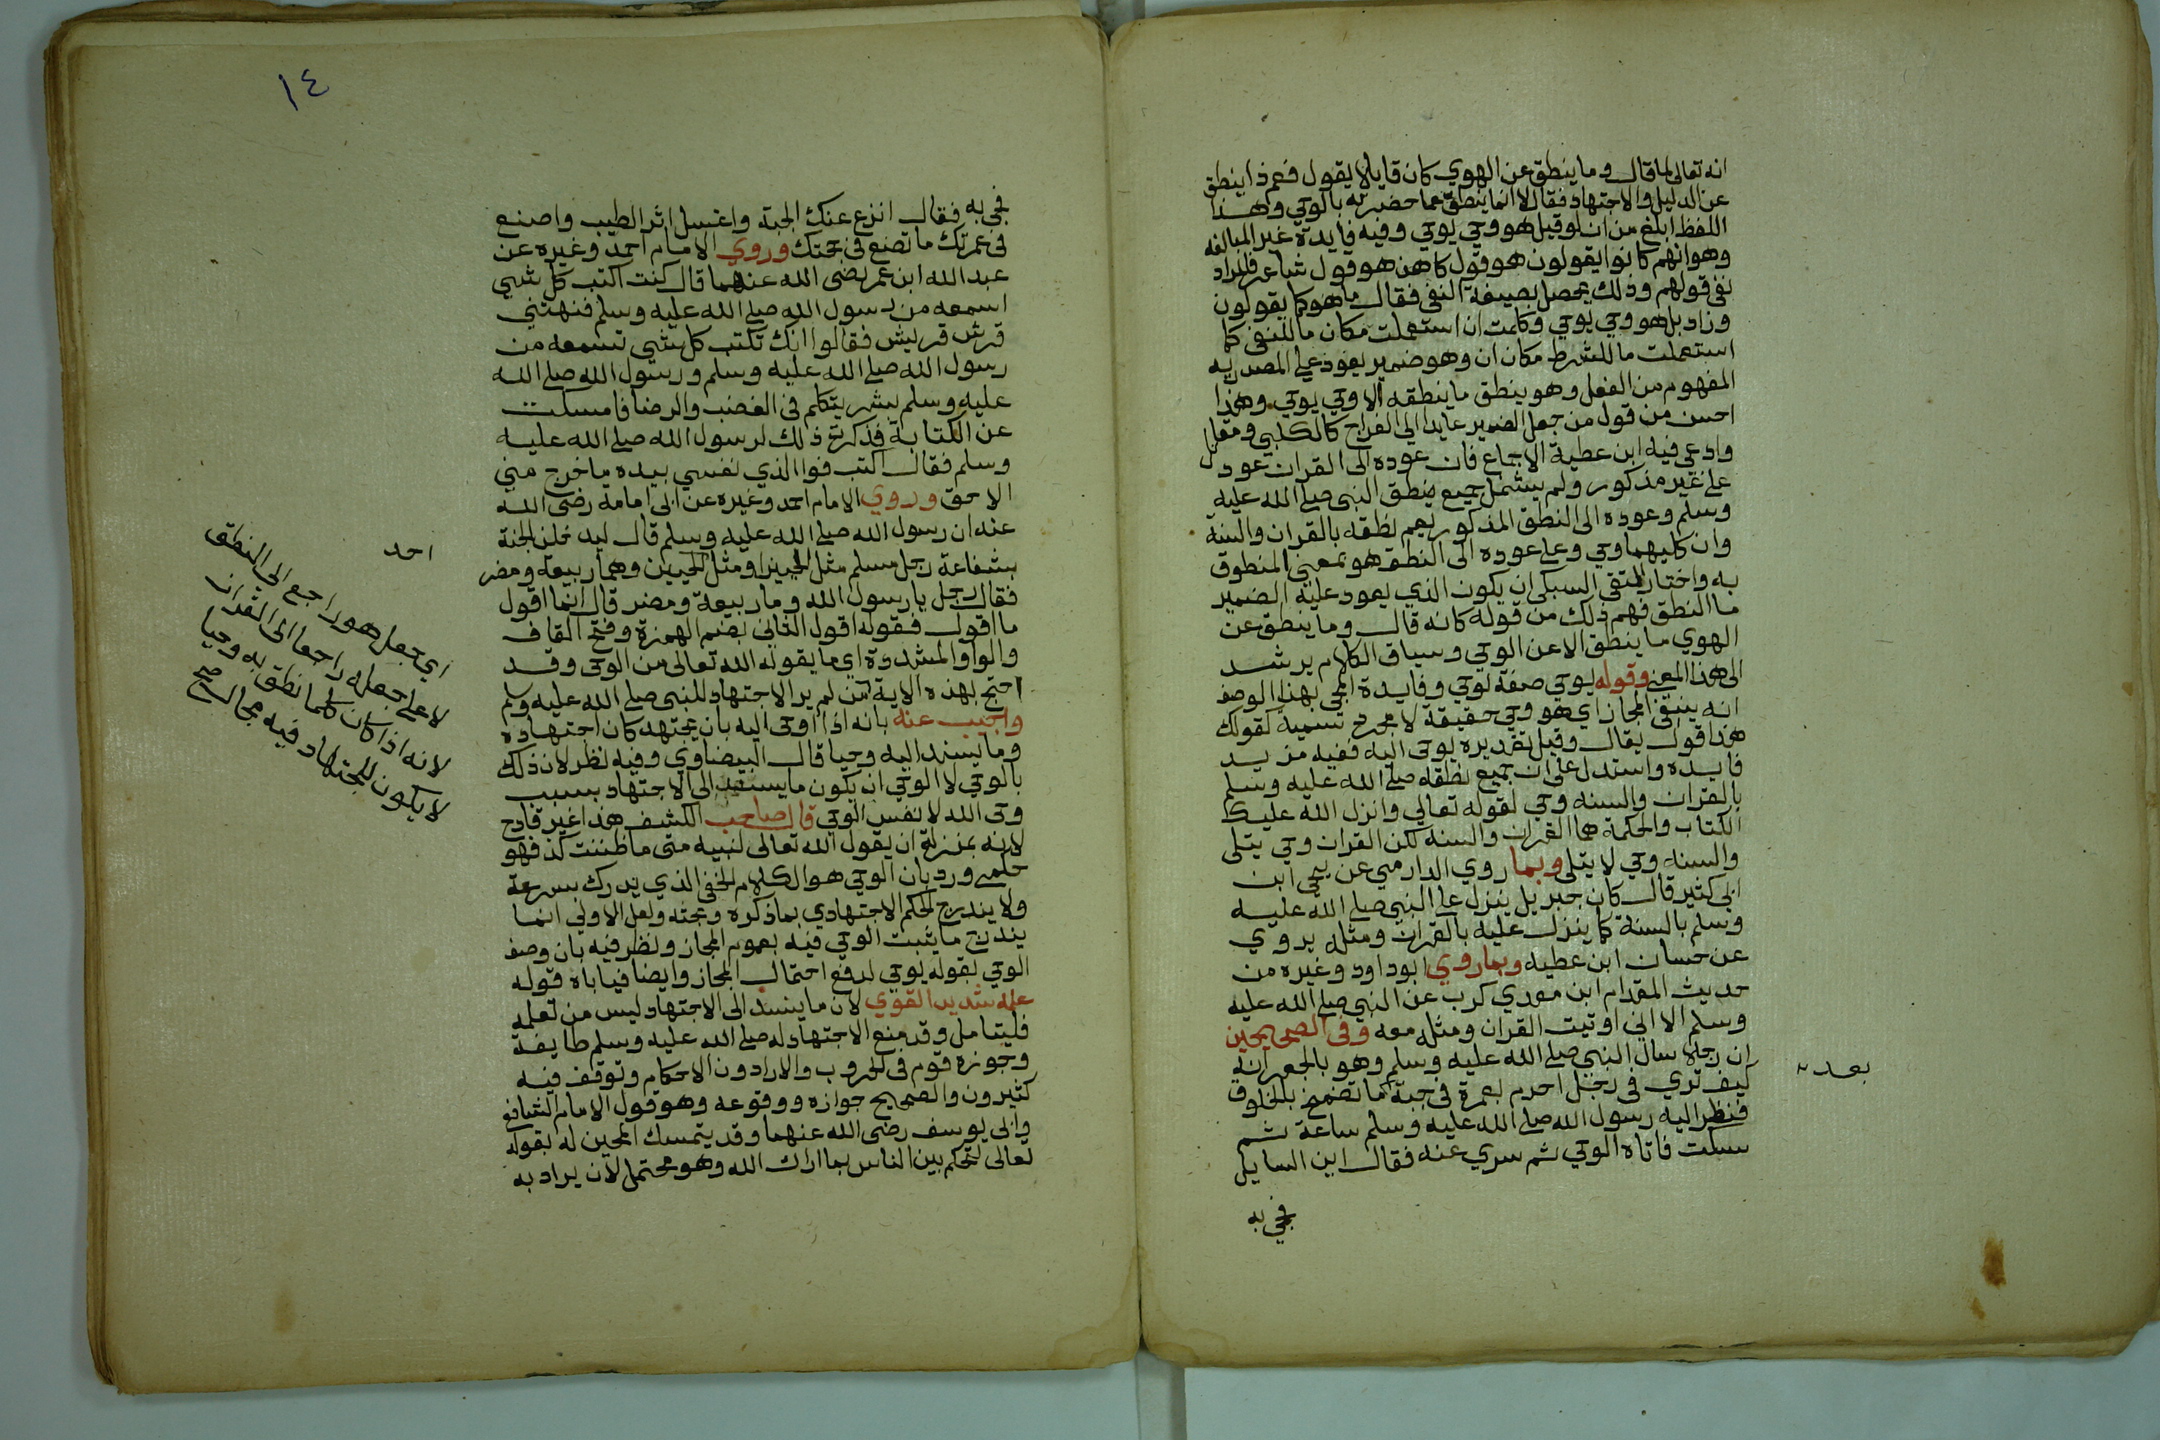 انه تعالى لما قال وما ينطق عن الهوي كان قايلا يقول فعم ذا ينطق
عن الدليل والاجتهاد فقال لا انما ينطق عما حضرته بالوحي وهذا
اللفظ ابلغ من ان لو قيل هو وحي يوحي وفيه فايدة غير المبالغه
وهو انهم كانوا يقولون هو قول كاهن هو قول شاعر فالمراد
نفى قولهم وذلك يحصل بصيغة النفى فقال ما هو كما يقولون
وزاد بل هو وحي يوحي وكلمت ان استعملت مكان ما للنفى كما
استعملت ما للشرط مكان ان وهو ضمير يعود على المصدريه
المفهوم من الفعل وهو ينطق ما ينطقه الا وحي يوحي وهذا
احسن من قول من جعل الضمير عايدا الى القراح كالكلبي ومقل
وادعى فيه ابن عطية الاجماع فان عوده الى القران عود
على غير مذكور ولم يشتمل جميع منطق النبي صلى الله عليه
وسلم وعوده الى النطق المذكور يعم نطقه بالقران والسنة
وان كليهما وحي وعلى عوده الى النطق هو بمعنى المنطوق
به واختار التقى السبكى ان يكون الذي يعود عليه الضمير
ما النطق فهم ذلك من قوله كانه قال وما ينطق عن
الهوي ما ينطق الا عن الوحي وسياق الكلام يرشد
الى هذا المعنى وقوله يوحي صفة لوحي وفايدة المجى بهذا الوصف
انه ينفى المجاز اي هو وحي حقيقة لا مجرد تسمية كقولك
هذا قول يقال وقيل تقديره يوحى اليه ففيه مزيد
فايده واستدل على ان جميع نطقه صلى الله عليه وسلم
بالقران والسنه وحي لقوله تعالى وانزل الله عليك
الكتاب والحكمة هما القران والسنة لكن القران وحي يتلى
والسنه وحي لا يتلى وبما روي الدارمي عن يحيى ابن
ابى كثير قال كان جبريل ينزل على النبى صلى الله عليه
وسلم بالسنة كما ينزل عليه بالقران ومثله يروي
عن حسان ابن عطيه وبما روي ابو داود وغيره من
حديث المقدام ابن معدي كرب عن النبي صلى الله عليه
وسلم الا اني اوتيت القران ومثله معه وفى الصحيحين
ان رجلا سال النبى صلى الله عليه وسلم وهو بالجعرانة
كيف تري فى رجل احرم بعمرة فى جبة ما تضمخ بالخلوق
فنظر اليه رسول الله صلى الله عليه وسلم ساعة ثم
سكت فاتاه الوحي ثم سري عنه فقال اين السايل
فجي به
بعد
١٤
فجى به فقال انزع عنك الجبة واغسل اثر الطيب واصنع
فى عمرتك ما تصنع فى حجتك وروي الامام احمد وغيره عن
عبد الله ابن عمر رضى الله عنهما قال كنت اكتب كل شي
اسمعه من رسول الله صلى الله عليه وسلم فنهتنى
قرش قريش فقالوا انك تكتب كل شي تسمعه من
رسول الله صلى الله عليه وسلم ورسول الله صلى الله
عليه وسلم بشر يتكلم فى الغضب والرضا فامسكت
عن الكتابة فذكرت ذلك لرسول الله صلى الله عليه
وسلم فقال اكتب فوا الذي نفسي بيده ما خرج منى
الا حق وروي الامام احمد وغيره عن ابى امامه رضى الله
عنه ان رسول الله صلى الله عليه وسلم قال ليدخلن الجنة
بشفاعة رجل مسلم مثل الحيين او مثل الحيين وهما ربيعه ومضر
فقال رجل يا رسول الله وما ربيعة ومضر قال انما اقول
ما اقول فقوله اقول الثانى بضم الهمزة وفتح القاف
والواو المشددة اي ما يقوله الله تعالى من الوحى وقد
احتج بهذه الاية من لم ير الاجتهاد للنبي صلى الله عليه وسلم
واجيب عنه بانه اذا اوحى اليه بان يجتهد كان اجتهاده
وما يسند اليه وحيا قال البيضاوي وفيه نظر لان ذلك
بالوحي لا الوحي ان يكون ما يستند الى الاجتهاد بسبب
وحى الله لا نفس الوحي قال صاحب الكشف هذا غير قادح
لانه بمنزلة ان يقول الله تعالى لنبيه متى ما ظننت كذ فهو
حكمي ورد بان الوحي هو الكلام الخفى الذي يدرك بسرعة
ولا يندرج الحكم الاجتهادي بما ذكره وبحثه ولعل الاولى انما
يندرج ما يثبت الوحي فيه بعموم المجاز ونظر فيه بان وصف
الوحي بقوله يوحي لدفع احتمال المجاز وايضا فياباه قوله
علمه شديد القوي لان ما يسند الى الاجتهاد ليس من تعلمه
فليتامل وقد منع الاجتهاد له صلى الله عليه وسلم طايفة
وجوزه قوم فى الحروب والارا دون الاحكام وتوقف فيه
كثيرون والصحيح جوازه ووقوعه وهو قول الامام الشافعي
وابى يوسف رضى الله عنهما وقد يتمسك المجيز له بقوله
تعالى لتحكم بين الناس بما اراك الله وهو محتمل لان يراد به
احد
اي جعل هو راجع الى النطق
لا على جعله راجعا الى القران
لانه اذا كان كلما نطق به وحيا
لا يكون للاجتهاد فيه مجال صح